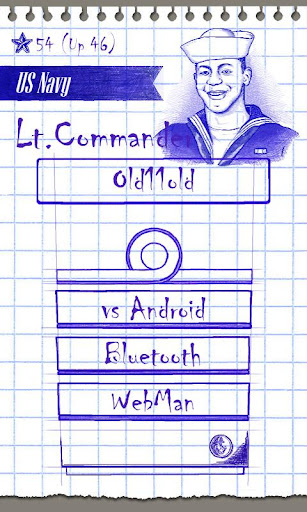 54 (Up 46)
US Navy
Lt.Commander
Old11old
vs Android
Bluetooth
WebMan